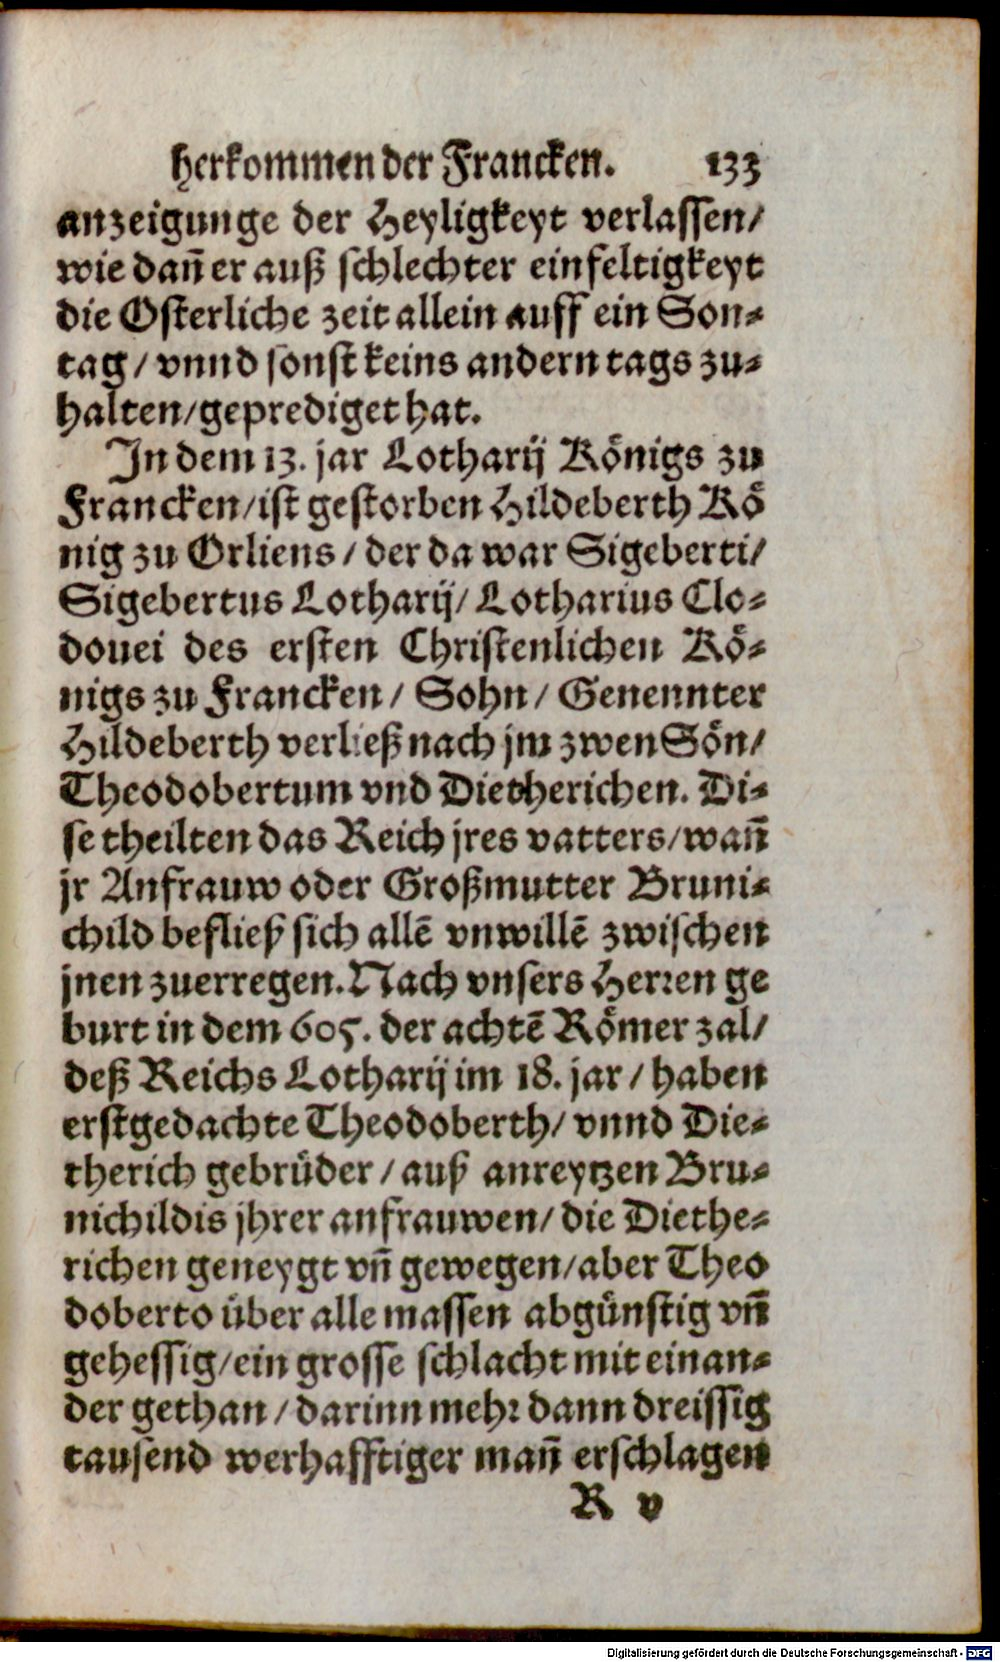 herkommen der Francken. 133
anzeigunge der Heyligkeyt verlassen/
wie dañ er auß schlechter einfeltigkeyt
die Osterliche zeit allein auff ein Son⸗
tag/ vnnd sonst keins andern tags zu⸗
halten/geprediget hat.
In dem 13. jar Lotharij Königs zu
Francken/ist gestorben Hildeberth Kö
nig zu Orliens/ der da war Sigeberti/
Sigebertus Lotharij/ Lotharius Clo⸗
douei des ersten Christenlichen Kö⸗
nigs zu Francken/ Sohn/ Genennter
Hildeberth verließ nach jm zwen Sön/
Theodobertum vnd Dietherichen. Di⸗
se theilten das Reich jres vatters/wañ
jr Anfrauw oder Großmutter Bruni⸗
child befließ sich allẽ vnwillẽ zwischen
jnen zuerregen. Nach vnsers Herren ge
burt in dem 605. der achtẽ Römer zal/
deß Reichs Lotharij im 18. jar/ haben
erstgedachte Theodoberth/ vnnd Die⸗
therich gebrüder/ auß anreytzen Bru⸗
nichildis jhrer anfrauwen/ die Diethe⸗
richen geneygt vñ gewegen/aber Theo
doberto über alle massen abgünstig vñ
gehessig/ein grosse schlacht mit einan⸗
der gethan/ darinn mehr dann dreissig
tausend werhafftiger mañ erschlagen
R v
Digitalisierung gefördert durch die Deutsche Forschungsgemeinschaft - DFG